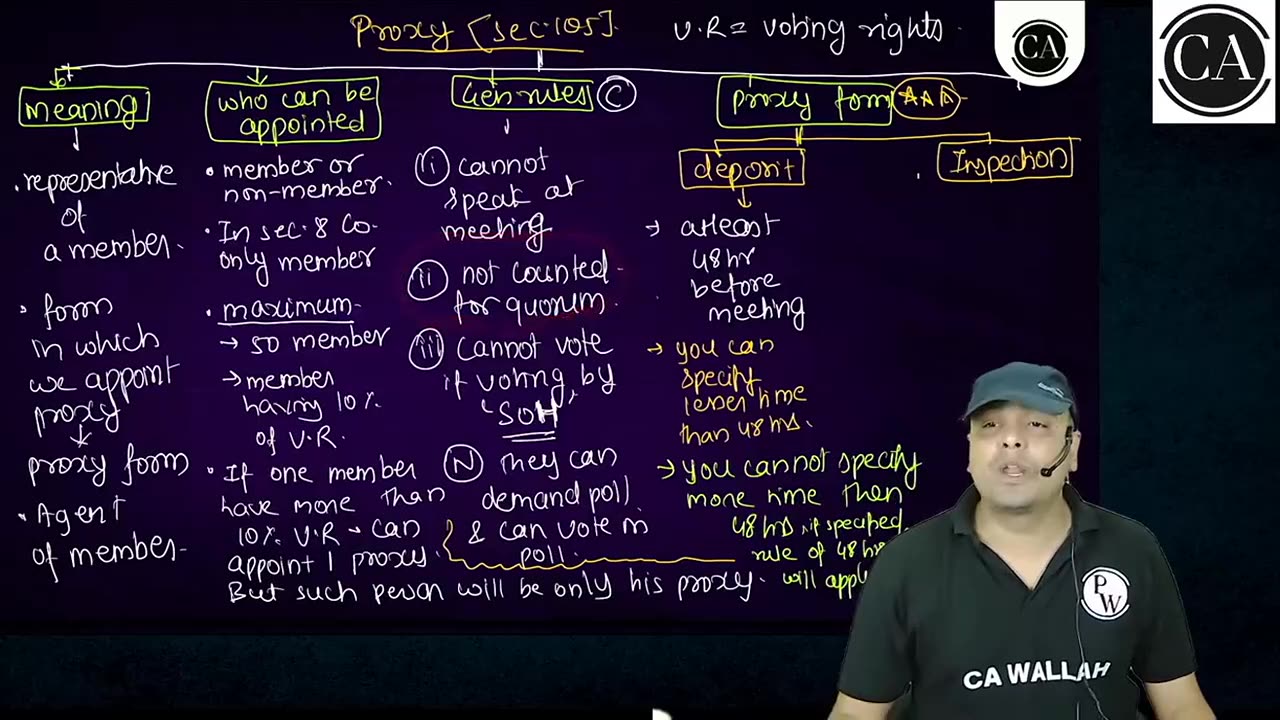 Proxy [sec.105].
V.R = voting rights.
CA
CA
meaning
representative
of
a member.
form
in which
we appoint
proxy
proxy form
Agent
of member.
who can be
appointed
member or
non-member.
In sec.8 co-
only member
maximum
→ 50 member
→ member
having 10%
of V.R.
If one member
have more than
10% V.R - can
appoint 1 proxy.
But such person will be only his proxy.
Gen rules
C
(i) cannot
speak at
meeting
(ii) not counted
for quorum.
(iii) cannot vote
if voting by
'SOH'
They can
demand poll
& can vote in
poll.
proxy form
deposit
→ atleast
48 hr
before
meeting
→ you can
specify
lesser time
than 48 hrs.
→ you cannot specify
more time then
48 hrs, if specified
rule of 48 hr
will apply
Inspection
PW
CA WALLAH